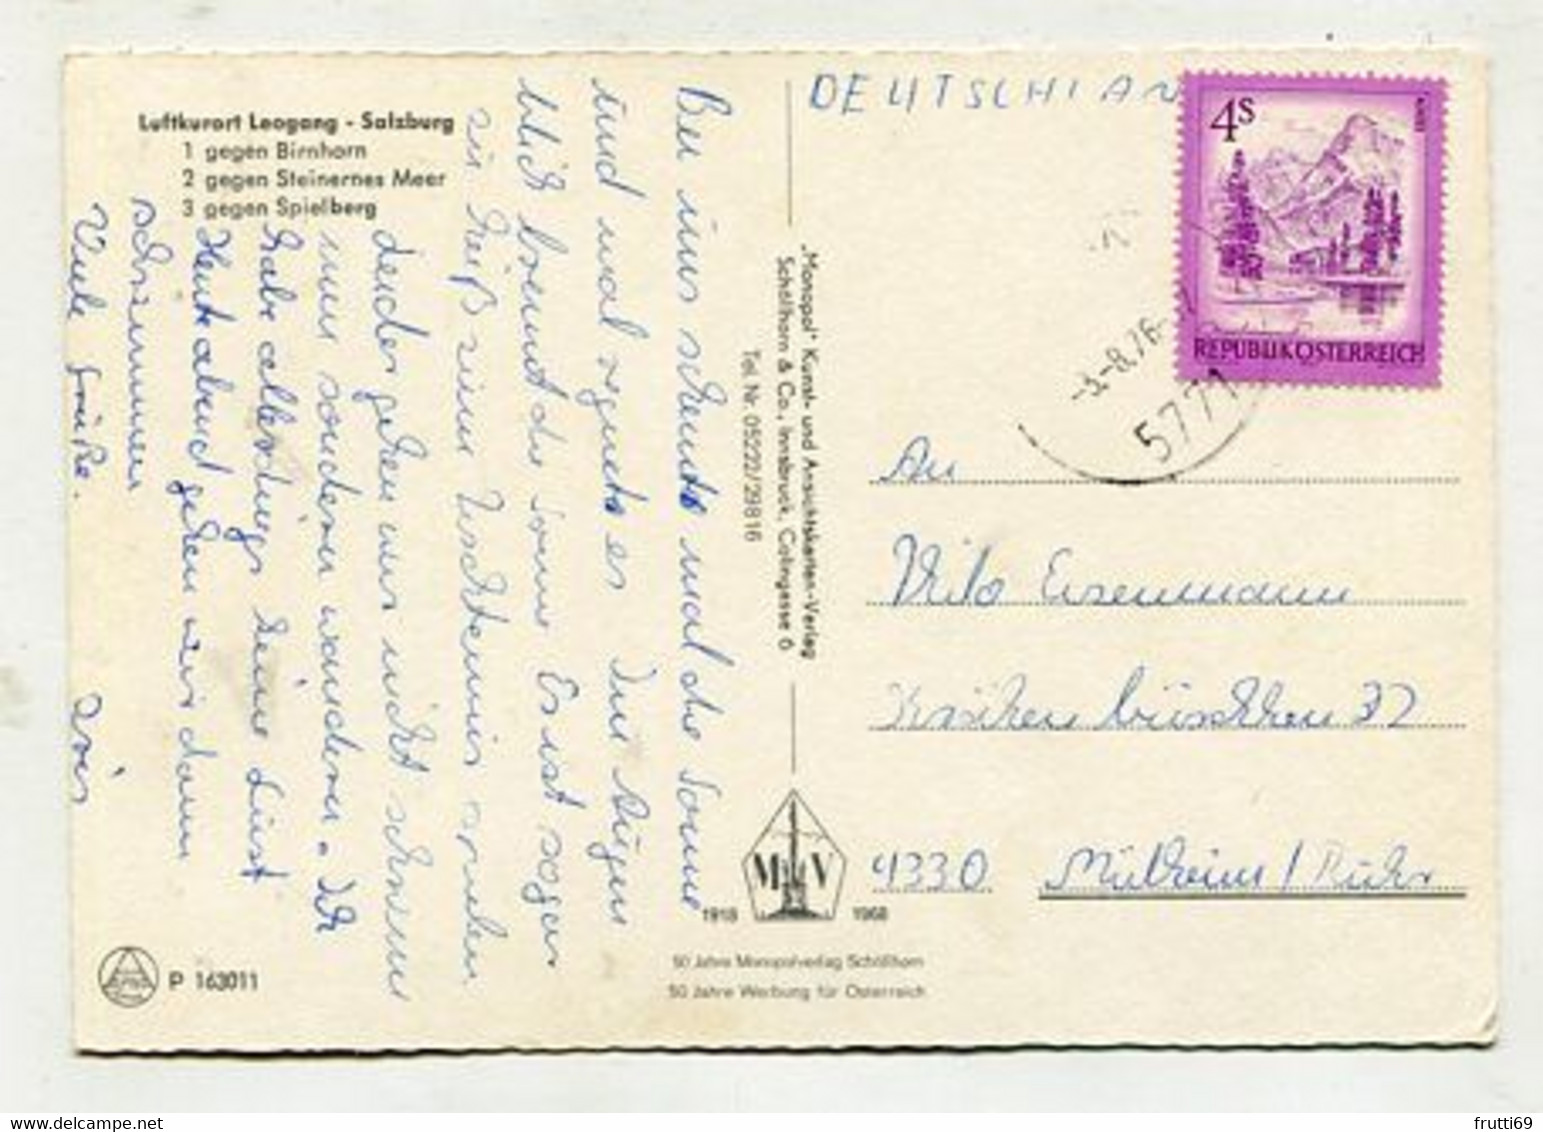 Luftkurort Leogang - Salzburg
1 gegen Birnhorn
2 gegen Steinernes Meer
3 gegen Spielberg
Bei uns scheint mal die Sonne
und mal regnet es. Im Augen
blick brennt die Sonne. Es ist sogar
zu heiß eine Tischtennis spielen
Leider gehen wir nicht schwimmen
nur sondern wandern. Ich
habe allerdings keine Lust
Heute abend gehen wir dann
schwimmen
Viele Grüße.
"Monopol" Kunst- und Ansichtskarten-Verlag
Schöllhorn & Co., Innsbruck, Colingasse 6
Tel. Nr. 05222/29816
M V
1918 1968
50 Jahre Monopolverlag Schöllhorn
50 Jahre Werbung für Österreich
P 163011
DEUTSCHLAN
4S
REPUBLIK ÖSTERREICH
-3.-8.76-
5771
An
Eisenmann
büschken 32
4330 Mülheim/Ruhr
frutti69